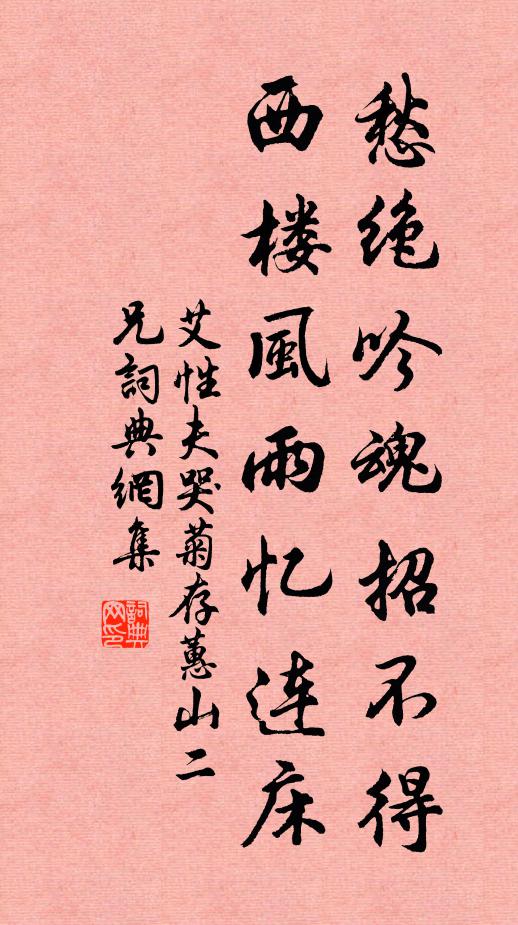 愁绝吟魂招不得
西楼風雨忆连床
艾性夫哭菊存蕙山二
兄詞典網集
詞典網印